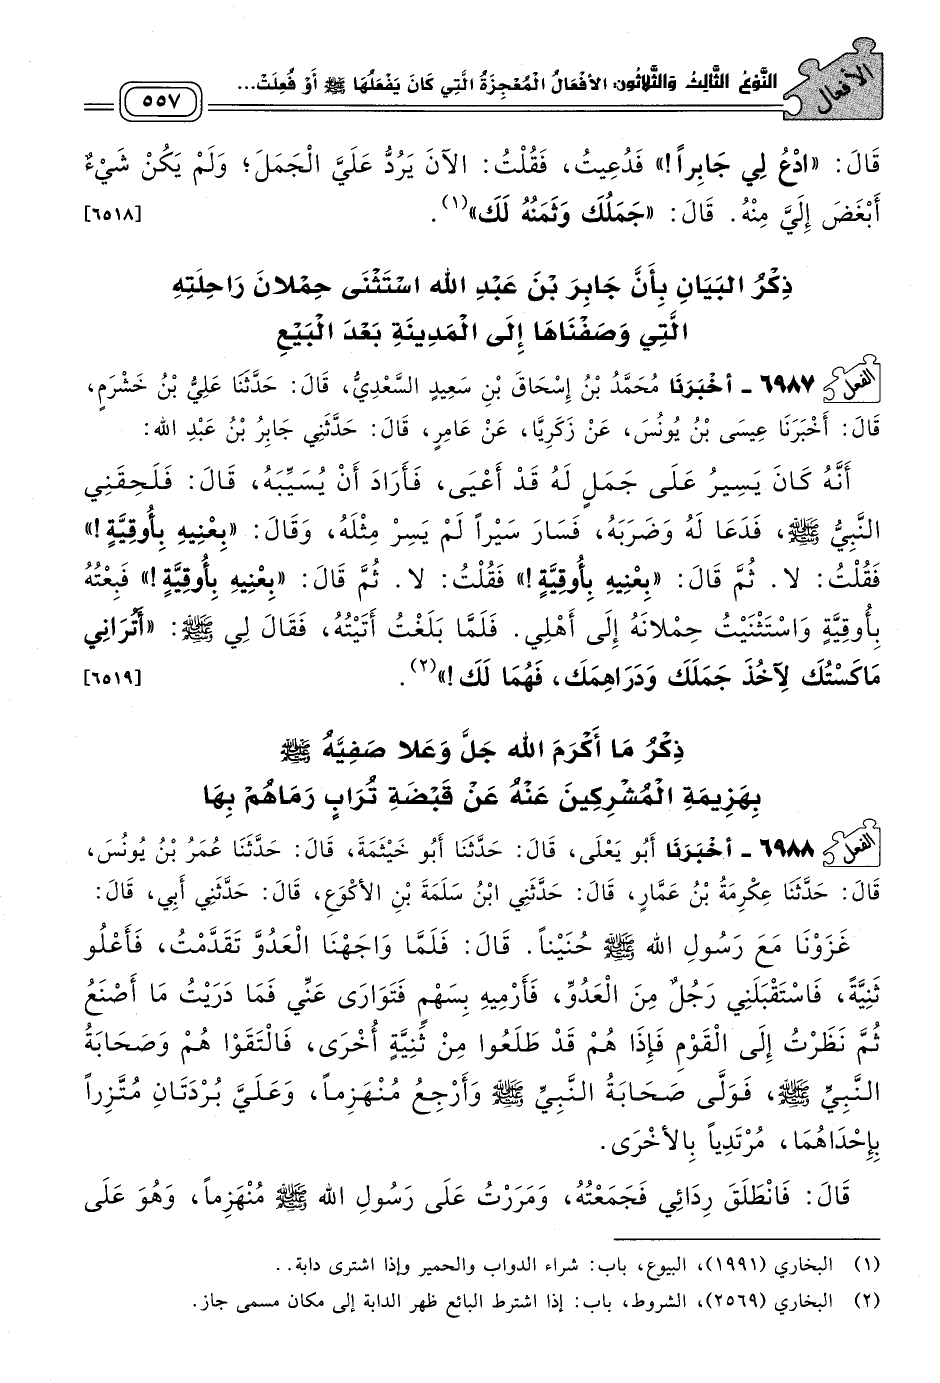 الأفعال
النَّوْعُ الثَّالِثُ وَالثَّلاثُونَ: الأَفْعَالُ الْمُعْجِزَةُ الَّتِي كَانَ يَفْعَلُهَا ﷺ أَوْ فُعِلَتْ...
٥٥٧
قَالَ: «ادْعُ لِي جَابِراً!» فَدُعِيتُ، فَقُلْتُ: الآنَ يَرُدُّ عَلَيَّ الْجَمَلَ؛ وَلَمْ يَكُنْ شَيْءٌ
أَبْغَضَ إِلَيَّ مِنْهُ. قَالَ: «جَمَلُكَ وَثَمَنُهُ لَكَ»(١). [٦٥١٨]
ذِكْرُ الْبَيَانِ بِأَنَّ جَابِرَ بْنَ عَبْدِ الله اسْتَثْنَى حِمْلانَ رَاحِلَتِهِ
الَّتِي وَصَفْنَاهَا إِلَى الْمَدِينَةِ بَعْدَ الْبَيْعِ
الفعل ٦٩٨٧ - أَخْبَرَنَا مُحَمَّدُ بْنُ إِسْحَاقَ بْنِ سَعِيدٍ السَّعْدِيُّ، قَالَ: حَدَّثَنَا عَلِيُّ بْنُ خَشْرَمٍ،
قَالَ: أَخْبَرَنَا عِيسَى بْنُ يُونُسَ، عَنْ زَكَرِيَّا، عَنْ عَامِرٍ، قَالَ: حَدَّثَنِي جَابِرُ بْنُ عَبْدِ الله:
أَنَّهُ كَانَ يَسِيرُ عَلَى جَمَلٍ لَهُ قَدْ أَعْيَى، فَأَرَادَ أَنْ يُسَيِّبَهُ، قَالَ: فَلَحِقَنِي
النَّبِيُّ ﷺ، فَدَعَا لَهُ وَضَرَبَهُ، فَسَارَ سَيْراً لَمْ يَسِرْ مِثْلَهُ، وَقَالَ: «بِعْنِيهِ بِأُوقِيَّةٍ!»
فَقُلْتُ: لا. ثُمَّ قَالَ: «بِعْنِيهِ بِأُوقِيَّةٍ!» فَقُلْتُ: لا. ثُمَّ قَالَ: «بِعْنِيهِ بِأُوقِيَّةٍ!» فَبِعْتُهُ
بِأُوقِيَّةٍ وَاسْتَثْنَيْتُ حِمْلانَهُ إِلَى أَهْلِي. فَلَمَّا بَلَغْتُ أَتَيْتُهُ، فَقَالَ لِي ﷺ: «أَتُرَانِي
مَاكَسْتُكَ لِآخُذَ جَمَلَكَ وَدَرَاهِمَكَ، فَهُمَا لَكَ!»(٢). [٦٥١٩]
ذِكْرُ مَا أَكْرَمَ الله جَلَّ وَعَلا صَفِيَّهُ ﷺ
بِهَزِيمَةِ الْمُشْرِكِينَ عَنْهُ عَنْ قَبْضَةِ تُرَابٍ رَمَاهُمْ بِهَا
الفعل ٦٩٨٨ - أَخْبَرَنَا أَبُو يَعْلَى، قَالَ: حَدَّثَنَا أَبُو خَيْثَمَةَ، قَالَ: حَدَّثَنَا عُمَرُ بْنُ يُونُسَ،
قَالَ: حَدَّثَنَا عِكْرِمَةُ بْنُ عَمَّارٍ، قَالَ: حَدَّثَنِي ابْنُ سَلَمَةَ بْنِ الأَكْوَعِ، قَالَ: حَدَّثَنِي أَبِي، قَالَ:
غَزَوْنَا مَعَ رَسُولِ الله ﷺ حُنَيْناً. قَالَ: فَلَمَّا وَاجَهْنَا الْعَدُوَّ تَقَدَّمْتُ، فَأَعْلُو
ثَنِيَّةً، فَاسْتَقْبَلَنِي رَجُلٌ مِنَ الْعَدُوِّ، فَأَرْمِيهِ بِسَهْمٍ فَتَوَارَى عَنِّي فَمَا دَرَيْتُ مَا أَصْنَعُ
ثُمَّ نَظَرْتُ إِلَى الْقَوْمِ فَإِذَا هُمْ قَدْ طَلَعُوا مِنْ ثَنِيَّةٍ أُخْرَى، فَالْتَقَوْا هُمْ وَصَحَابَةُ
النَّبِيِّ ﷺ، فَوَلَّى صَحَابَةُ النَّبِيِّ ﷺ وَأَرْجِعُ مُنْهَزِماً، وَعَلَيَّ بُرْدَتَانِ مُتَّزِراً
بِإِحْدَاهُمَا، مُرْتَدِياً بِالأُخْرَى.
قَالَ: فَانْطَلَقَ رِدَائِي فَجَمَعْتُهُ، وَمَرَرْتُ عَلَى رَسُولِ الله ﷺ مُنْهَزِماً، وَهُوَ عَلَى
(١) البخاري (١٩٩١)، البيوع، باب: شراء الدواب والحمير وإذا اشترى دابة..
(٢) البخاري (٢٥٦٩)، الشروط، باب: إذا اشترط البائع ظهر الدابة إلى مكان مسمى جاز.